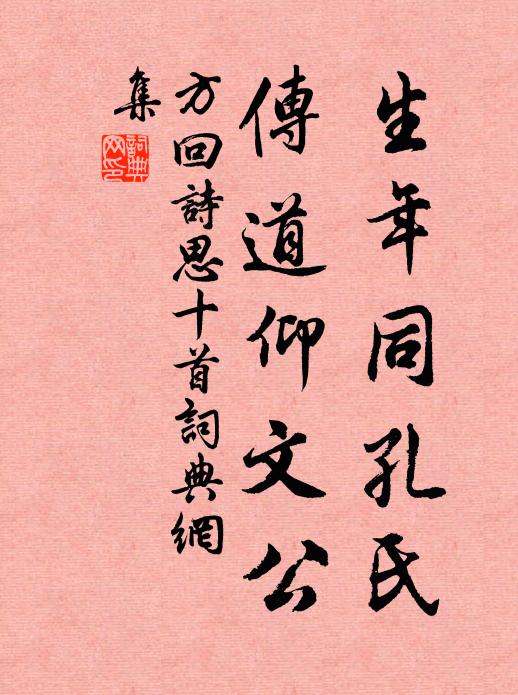 生年同孔氏
傳道仰文公
方回詩思十首詞典網
集
詞典
网印